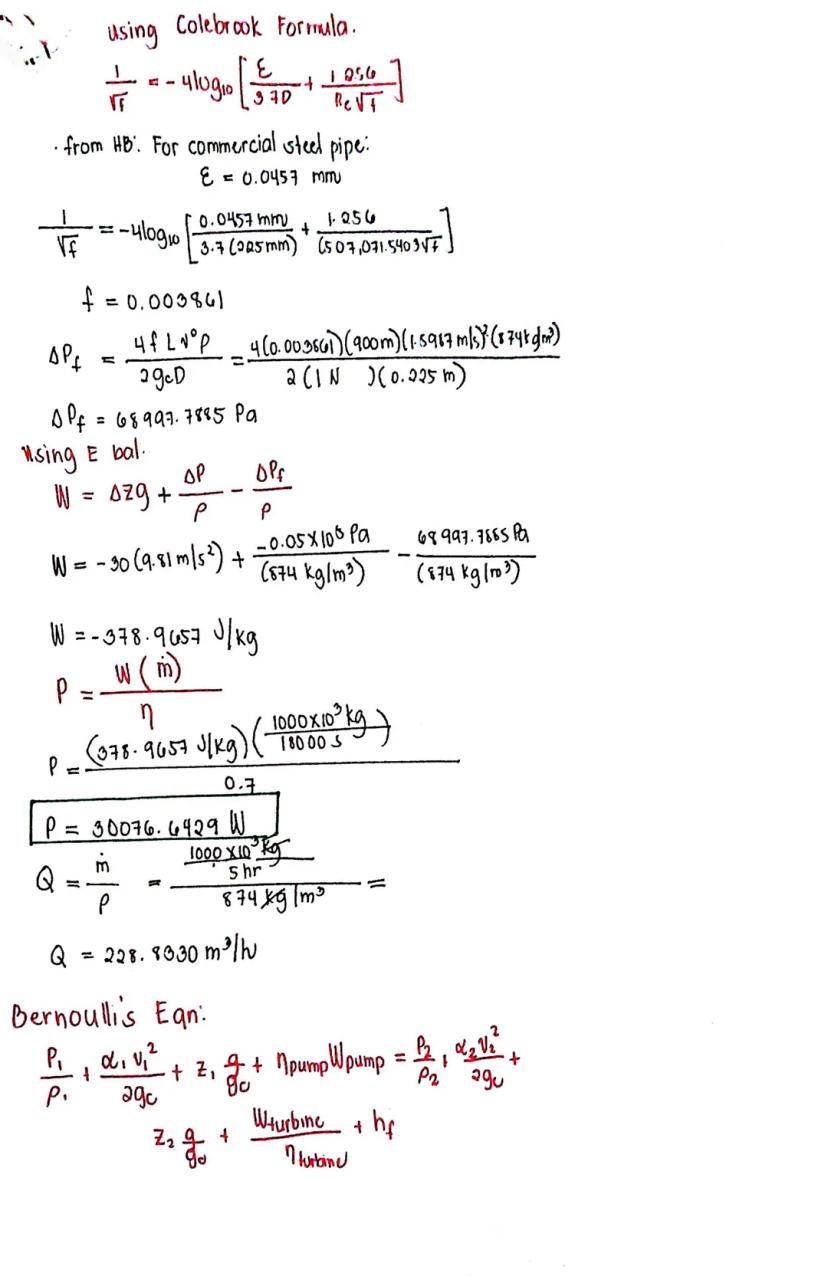 using Colebrook Formula.
1/√f = -4log10 [ε/3.7D + 1.256/Re√f]
· from HB: For commercial steel pipe:
ε = 0.0457 mm
1/√f = -4log10 [0.0457 mm/3.7(225mm) + 1.256/(507,071.5403√f]
f = 0.003861
ΔPf = 4fLv²ρ/2gcD = 4(0.003661)(900m)(1.5967 m/s)²(874kg/m³)/2(1N )(0.225 m)
ΔPf = 68997.7885 Pa
Using E bal.
W = ΔZg + ΔP/ρ - ΔPf/ρ
W = -30(9.81 m/s²) + -0.05×10⁶ Pa/(874 kg/m³) - 68997.7885 Pa/(874 kg/m³)
W = -378.9657 J/kg
P = W(ṁ)/η
P = (378.9657 J/kg)(1000×10³ kg/18000 s)/0.7
P = 30076.6429 W
Q = ṁ/ρ = 1000×10³ kg/5 hr/874 kg/m³ =
Q = 228.8330 m³/h
Bernoulli's Eqn:
P1/ρ1 + α1v1²/2gc + z1 g/gc + ηpumpWpump = P2/ρ2 + α2V2²/2gc +
Z2 g/gc + Wturbine/ηturbine + hf